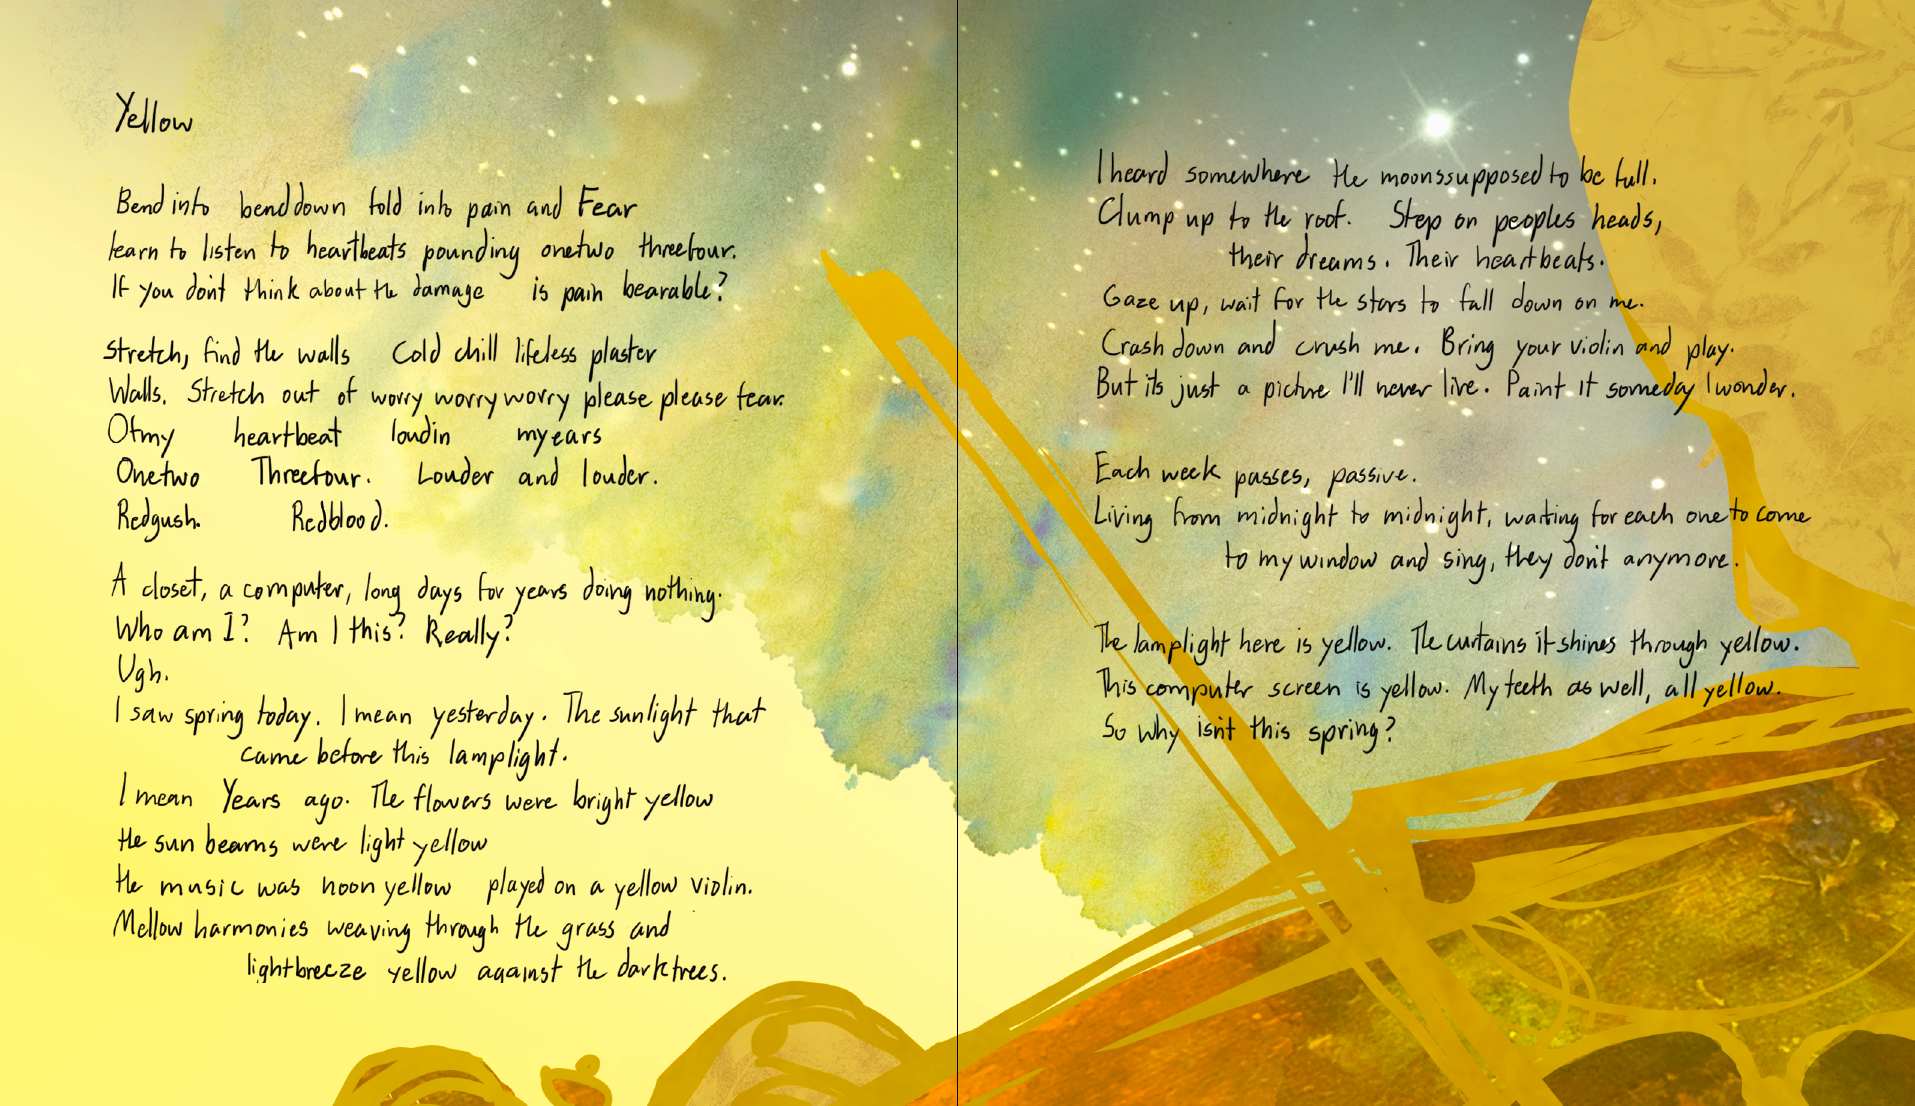 Yellow
Bend into bend down fold into pain and Fear
learn to listen to heartbeats pounding onetwo threefour.
If you don't think about the damage is pain bearable?
Stretch, find the walls Cold chill lifeless plaster
Walls. Stretch out of worry worry worry please please fear.
Ofmy heartbeat loudin myears
Onetwo Threefour. Louder and louder.
Redgush. Redblood.
A closet, a computer, long days for years doing nothing.
Who am I? Am I this? Really?
Ugh.
I saw spring today. I mean yesterday. The sunlight that
came before this lamplight.
I mean Years ago. The flowers were bright yellow
the sun beams were light yellow
the music was noon yellow played on a yellow violin.
Mellow harmonies weaving through the grass and
lightbreeze yellow against the darktrees.
I heard somewhere the moonssupposed to be full.
Clump up to the roof. Step on peoples heads,
their dreams. Their heartbeats.
Gaze up, wait for the stars to fall down on me.
Crash down and crush me. Bring your violin and play.
But its just a picture I'll never live. Paint it someday I wonder.
Each week passes, passive.
Living from midnight to midnight, waiting for each one to come
to my window and sing, they don't anymore.
The lamplight here is yellow. The curtains it shines through yellow.
This computer screen is yellow. My teeth as well, all yellow.
So why isn't this spring?